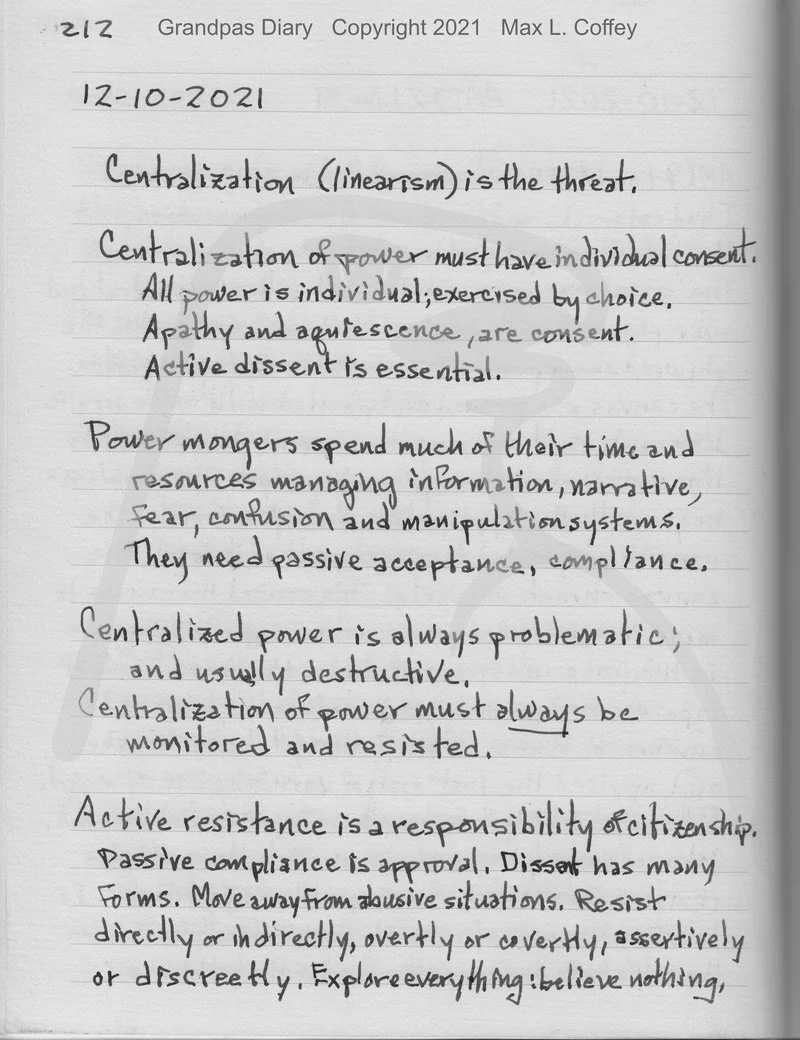 212 Grandpas Diary Copyright 2021 Max L. Coffey
12-10-2021
Centralization (linearism) is the threat.
Centralization of power must have individual consent.
All power is individual; exercised by choice.
Apathy and aquiescence, are consent.
Active dissent is essential.
Power mongers spend much of their time and
resources managing information, narrative,
fear, confusion and manipulation systems.
They need passive acceptance, compliance.
Centralized power is always problematic;
and usually destructive.
Centralization of power must always be
monitored and resisted.
Active resistance is a responsibility of citizenship.
Passive compliance is approval. Dissent has many
forms. Move away from abusive situations. Resist
directly or indirectly, overtly or covertly, assertively
or discreetly. Explore everything: believe nothing,